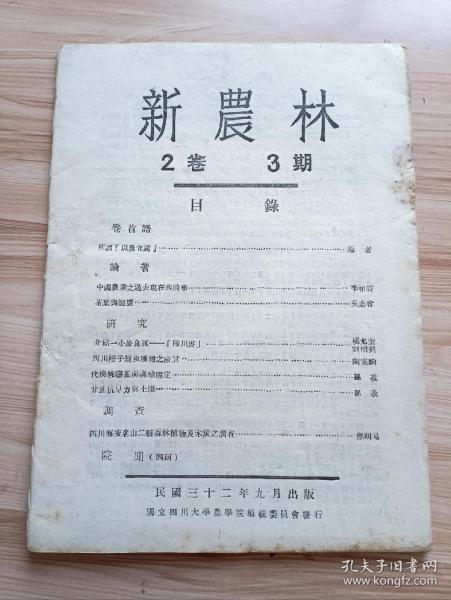 新農林
2卷 3期
目錄
卷首語
所謂「以農立國」 編者
論著
中國農業之過去現在與將來 李相符
茶葉與健康 吳志曾
研究
介紹一小麥良種——「 川麥」
四川柑子 蟲 之 討
代 醣 與 定 孫羲
甘蔗抗旱力與土壤 孫羲
調查
四川雅安名山二縣森林植物及木 之調查
院聞（四則）
民國三十二年九月出版
國立四川大學農學院編輯委員會發行
孔夫子旧书网
www.kongfz.com